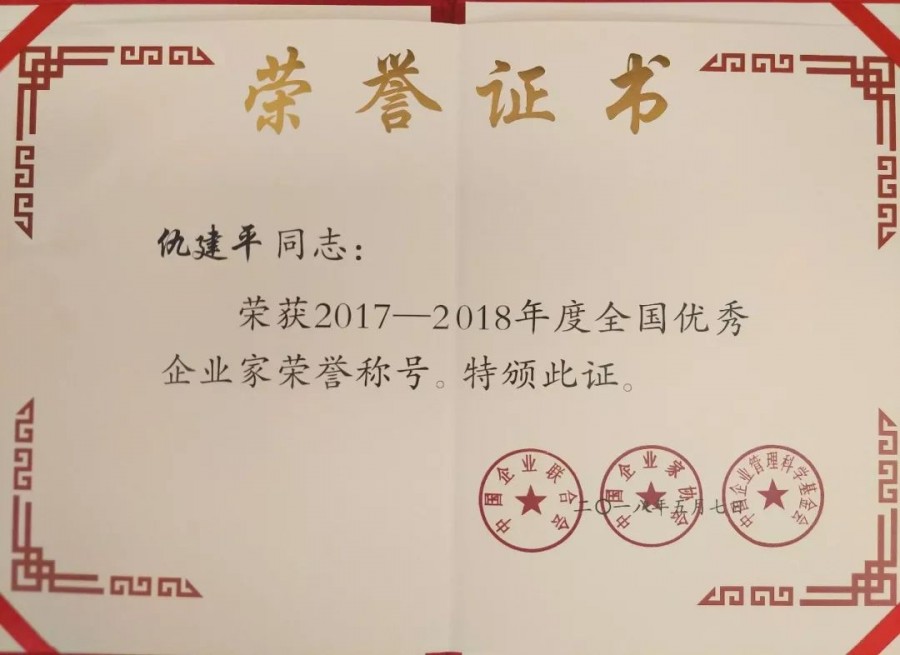 荣誉证书
仇建平同志：
荣获2017—2018年度全国优秀
企业家荣誉称号。特颁此证。
中国企业联合会
中国企业家协会
中国企业管理科学基金会
二〇一八年五月七日